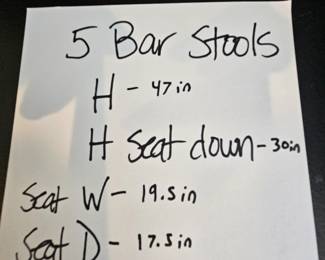 5 Bar Stools
H - 47in
H Seat down - 30in
Seat W - 19.5in
Seat D - 17.5in